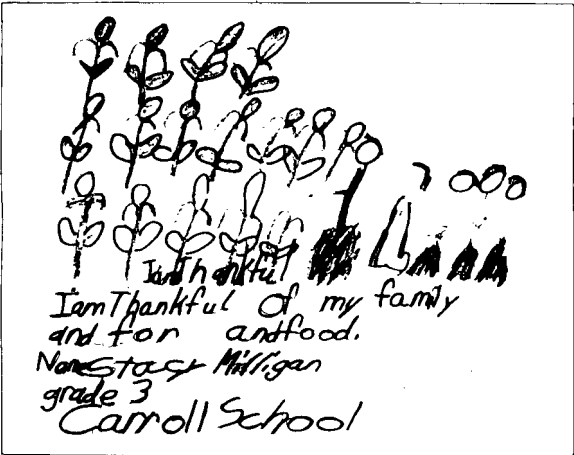 Iam Thankful
Iam Thankful of my family
and for andfood.
Name Stacy Milligan
grade 3
Carroll School